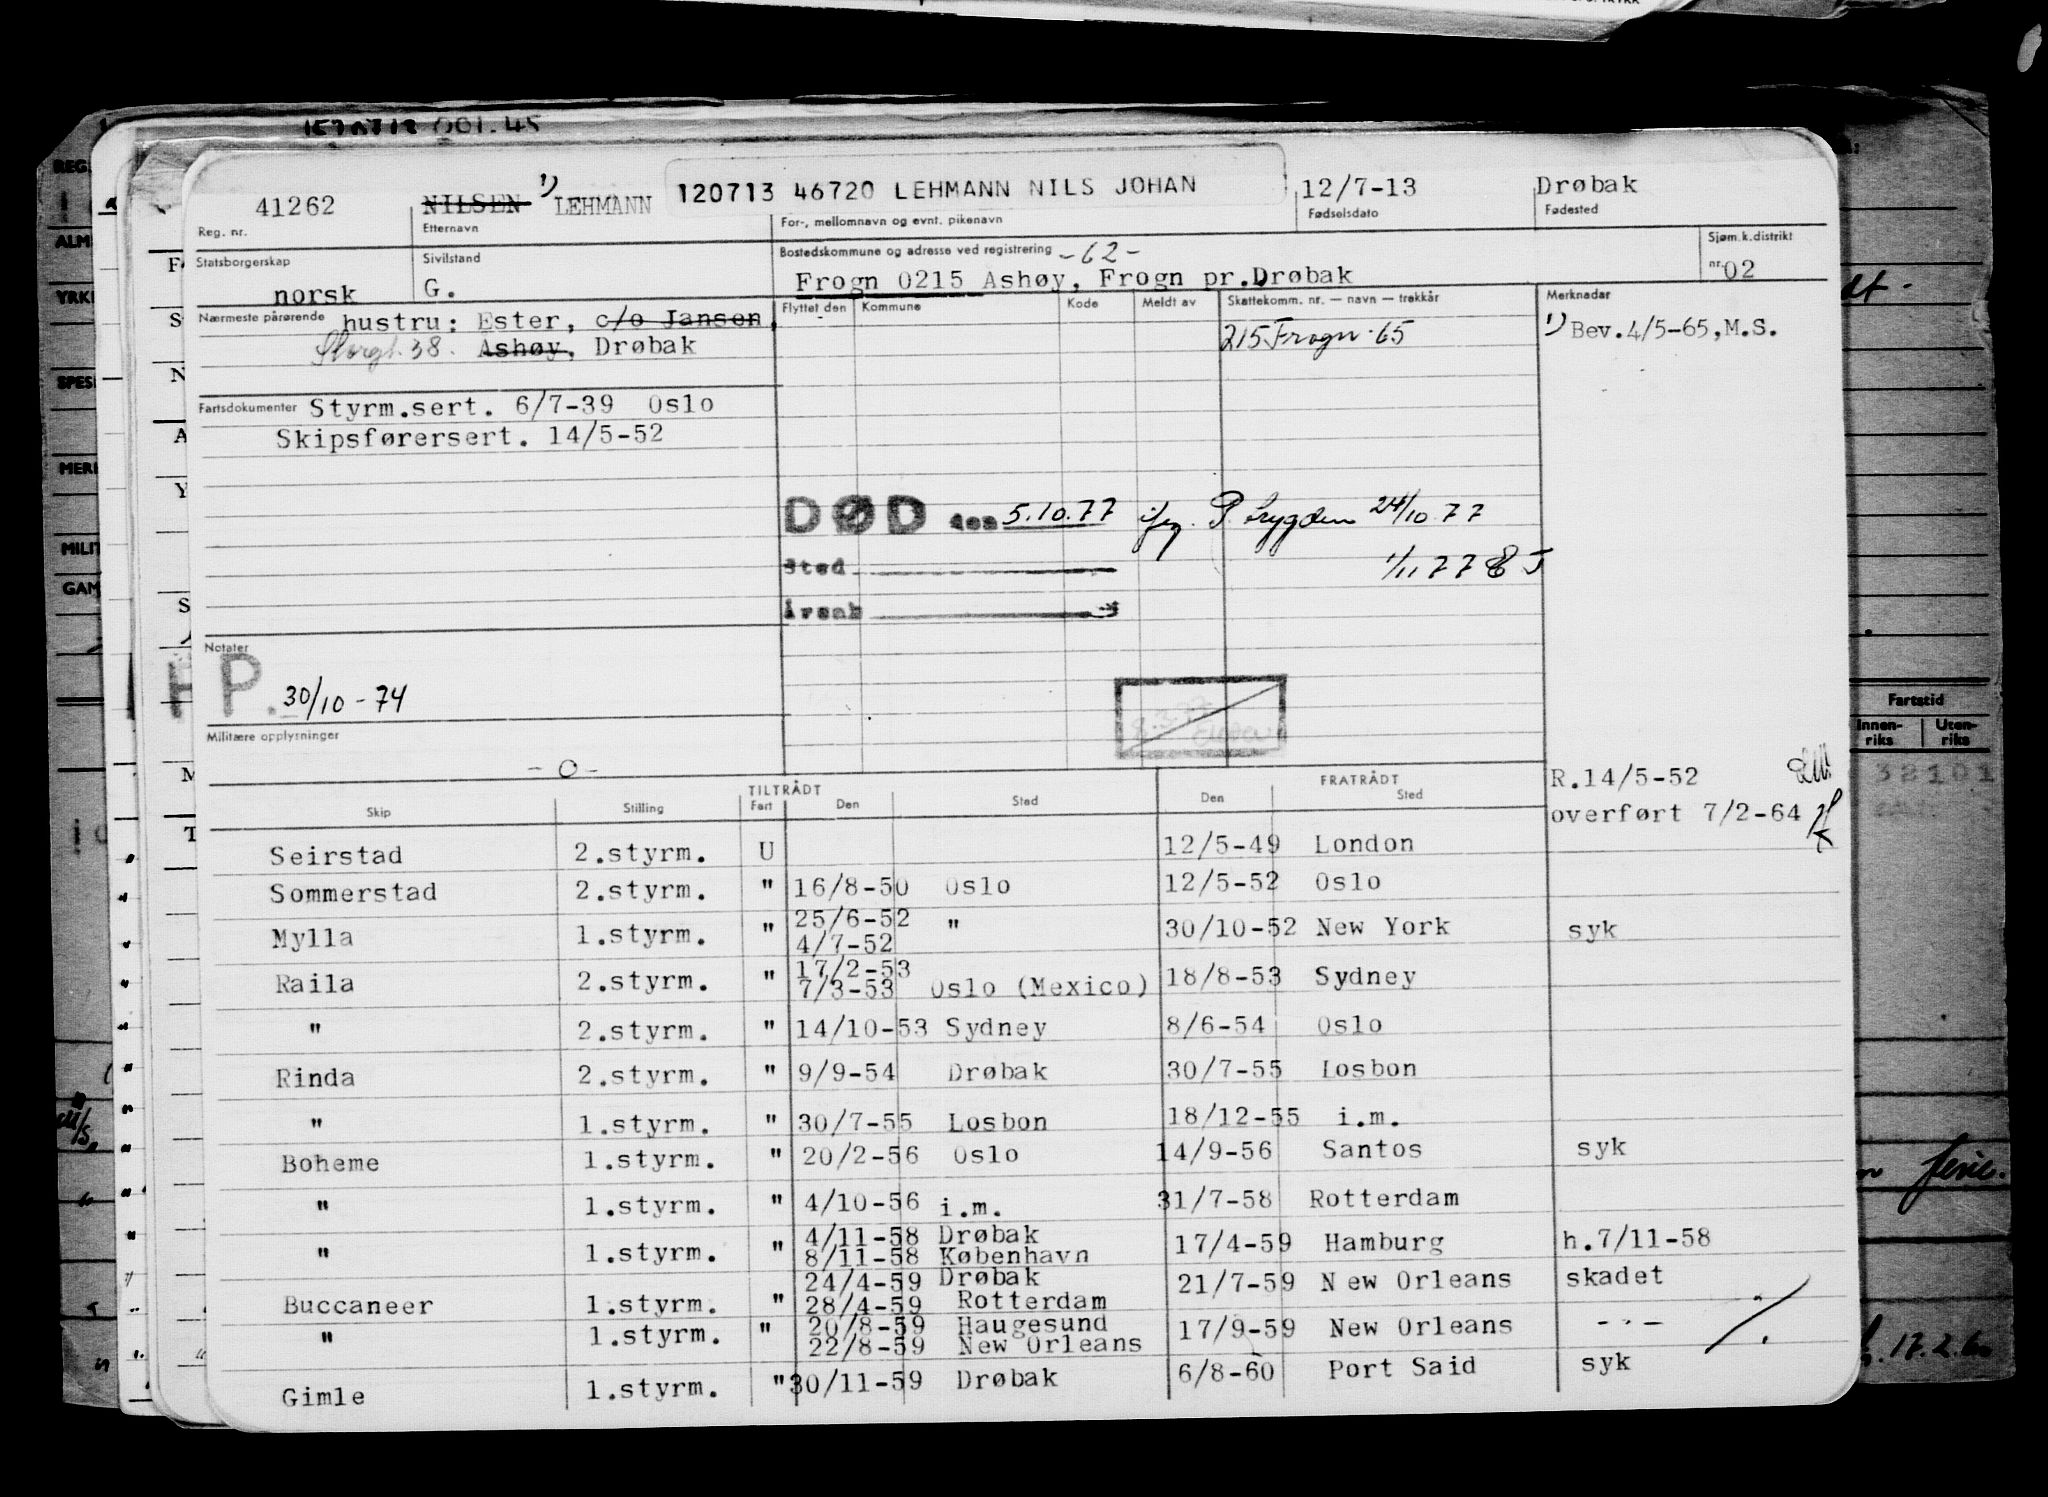 1570713 001.45
41262 NILSEN 1) LEHMANN 120713 46720 LEHMANN NILS JOHAN 12/7-13 Drøbak
Reg. nr. Etternavn For-, mellomnavn og evnt. pikenavn Fødselsdato Fødested
Statsborgerskap Sivilstand Bostedskommune og adresse ved registrering -62- Sjøm.k.distrikt
norsk G. Frogn 0215 Ashøy, Frogn pr.Drøbak nr. 02
Nærmeste pårørende hustru: Ester, c/o Jansen, Flyttet den Kommune Kode Meldt av Skattekomm. nr. — navn — trekkår Merknader
Storgt. 38. Ashøy, Drøbak 215 Frogn -65 1) Bev.4/5-65,M.S.
Fartsdokumenter Styrm.sert. 6/7-39 Oslo
Skipsførersert. 14/5-52
DØD den 5.10.77 24/10 77
Sted 1/11 77
Årsak
Notater
HP. 30/10-74
Militære opplysninger
-0-
TILTRÅDT FRATRÅDT R.14/5-52
Skip Stilling Fart Den Sted Den Sted
overført 7/2-64
Seirstad 2.styrm. U 12/5-49 London
Sommerstad 2.styrm. " 16/8-50 Oslo 12/5-52 Oslo
Mylla 1.styrm. " 25/6-52 4/7-52 " 30/10-52 New York syk
Raila 2.styrm. " 17/2-53 7/3-53 Oslo (Mexico) 18/8-53 Sydney
" 2.styrm. " 14/10-53 Sydney 8/6-54 Oslo
Rinda 2.styrm. " 9/9-54 Drøbak 30/7-55 Losbon
" 1.styrm. " 30/7-55 Losbon 18/12-55 i.m.
Boheme 1.styrm. " 20/2-56 Oslo 14/9-56 Santos syk
" 1.styrm. " 4/10-56 i.m. 31/7-58 Rotterdam
" 1.styrm. " 4/11-58 Drøbak 8/11-58 København 17/4-59 Hamburg h.7/11-58
Buccaneer 1.styrm. " 24/4-59 Drøbak 28/4-59 Rotterdam 21/7-59 New Orleans skadet
" 1.styrm. " 20/8-59 Haugesund 22/8-59 New Orleans 17/9-59 New Orleans - " -
Gimle 1.styrm. " 30/11-59 Drøbak 6/8-60 Port Said syk
Fartstid
Innen-riks Uten-riks
32101
ferie.
17.2.60